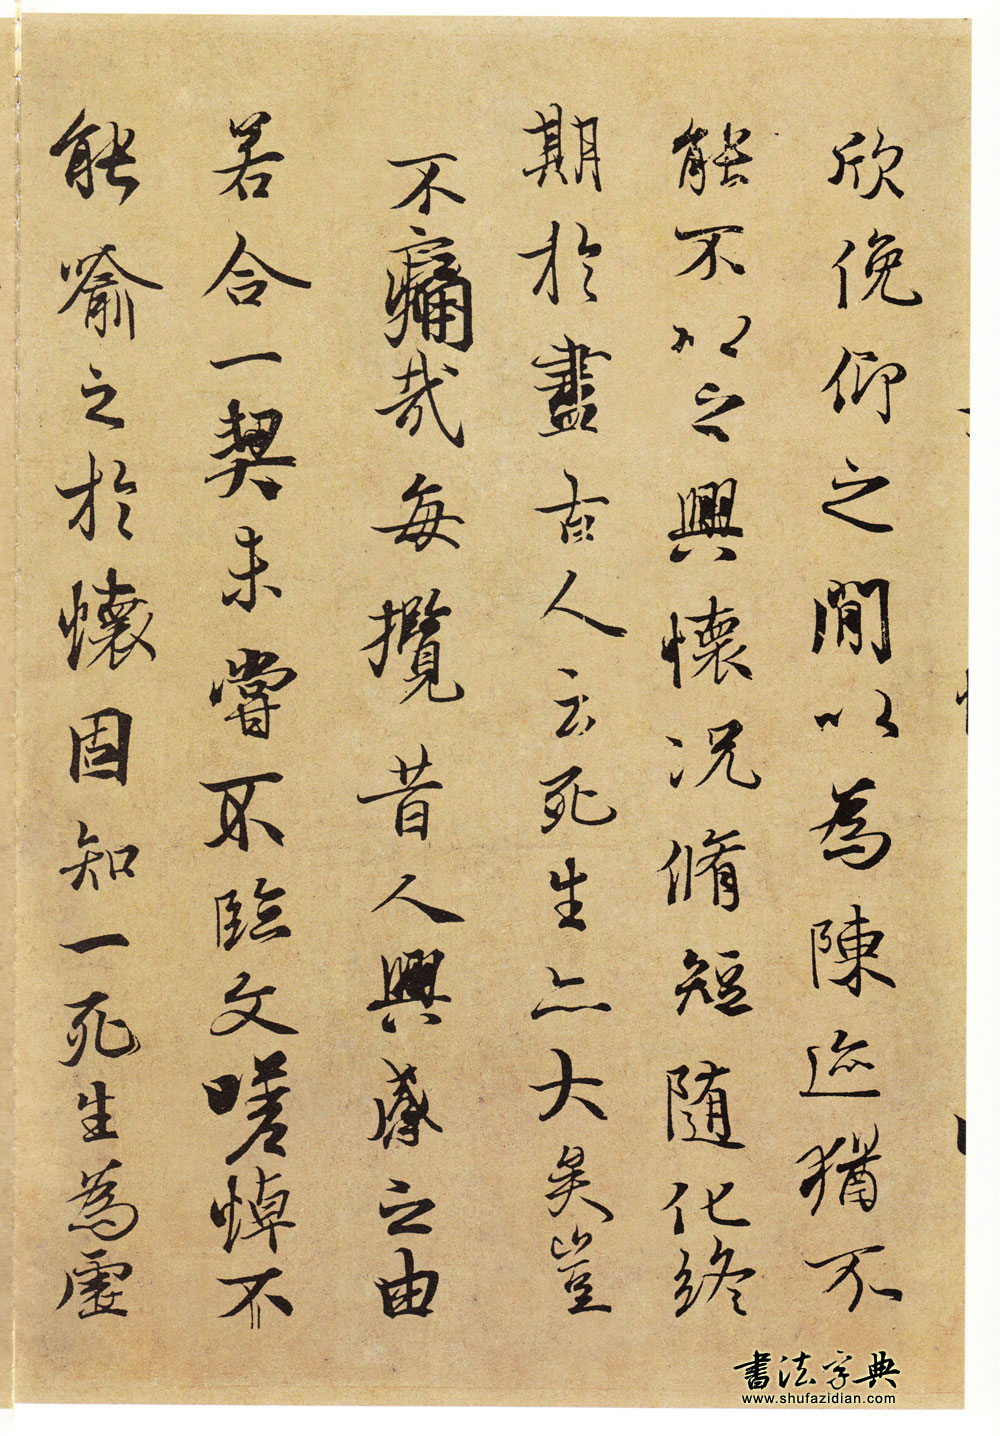 欣俛仰之閒以為陳迹猶不
能不以之興懷況脩短隨化終
期於盡古人云死生亦大矣豈
不痛哉每攬昔人興感之由
若合一契未嘗不臨文嗟悼不
能喻之於懷固知一死生為虛
書法字典
www.shufazidian.com